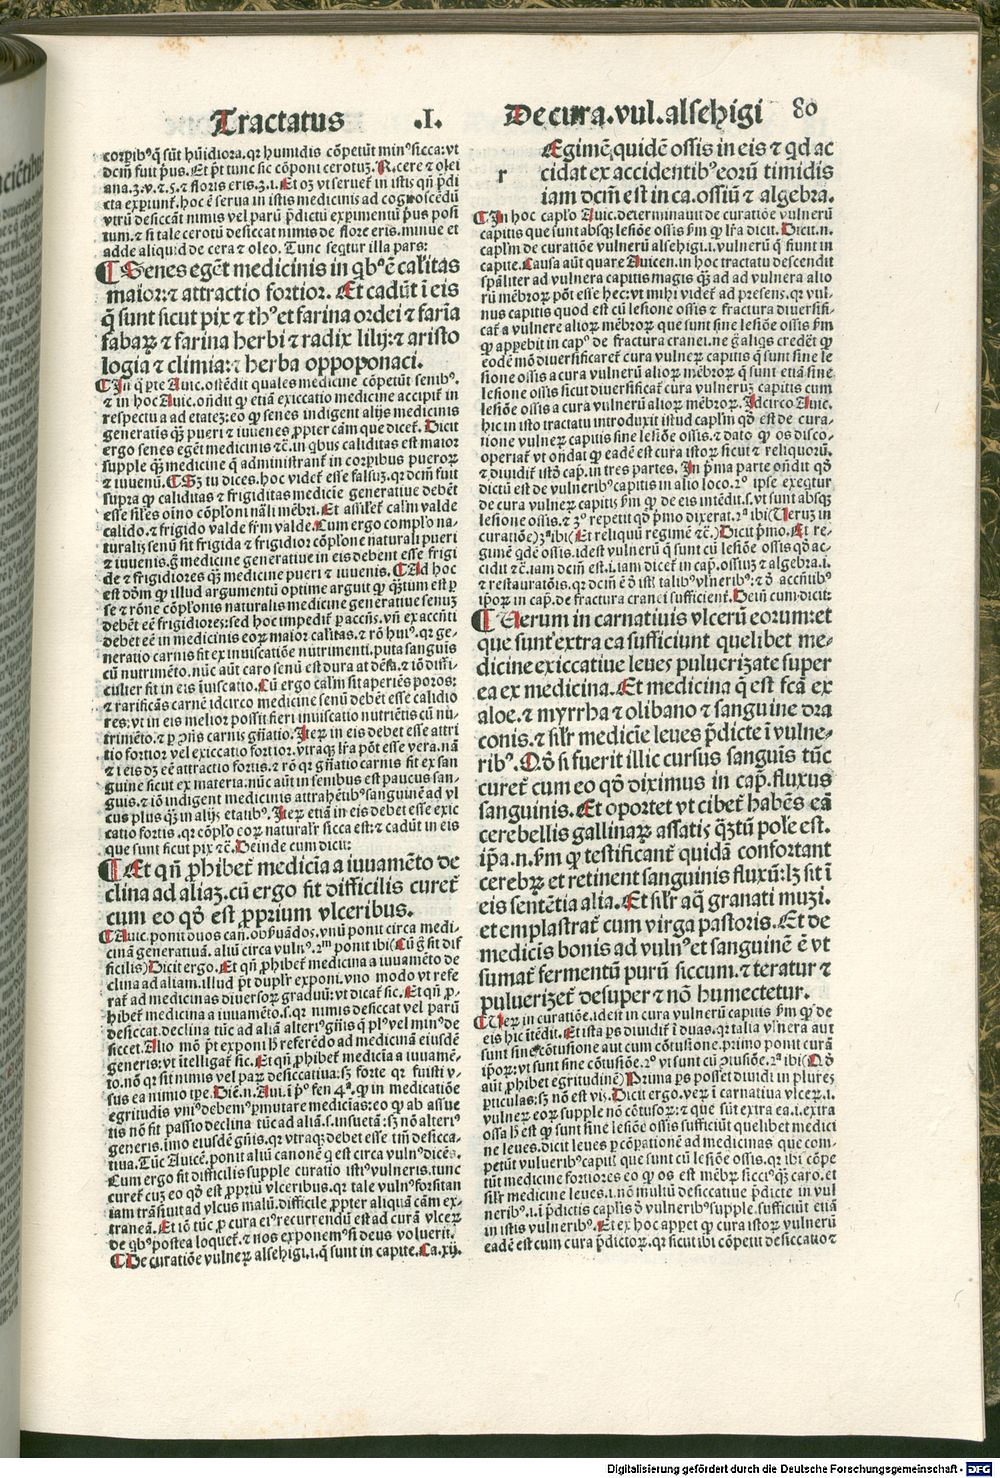 Tractatus .I. De cura.vul.alsehigi 80
corpibꝰ q̄ sūt hūidiora.qꝛ humidis cōpetūt minꝰ sicca:vt
dcm̄ fuit pͥus.Et pͥt tunc sic cōponi cerotuꝫ. R. cere ⁊ olei
ana.ʒ.v.⁊.ʒ.⁊ floris eris.ʒ.ı.Et oꝫ vt serueť in istis qn̄ pͥdi
cta expiunť.hoc ē serua in istis medicinis ad cognoscēdū
vtrū desiccāt nimis vel parū p̄dictū expimentū pͥus posi
tum.⁊ si tale cerotū desiccat nimis de flore eris.minue et
adde aliquid de cera ⁊ oleo. Tunc seqťur illa pars:
¶ Senes egēt medicinis in qͥbꝰ ē caliťas
maior:⁊ attractio fortior. Et cadūt ī eis
q̄ sunt sicut pix ⁊ thꝰ et farina ordei ⁊ farīa
fabaꝝ ⁊ farina herbi ⁊ radix lilij:⁊ aristo
logia ⁊ climia:⁊ herba oppoponaci.
¶ In q̄ pte Auic.ostēdit quales medicine cōpetūt senibꝰ.
⁊ in hoc Auic.oñdit ꝙ etiā exiccatio medicine accipiť in
respectu a ad etateꝫ:eo ꝙ senes indigent alijs medicinis
generatis qꝫ pueri ⁊ iuuenes ꝓpter cām que diceť. Dicit
ergo senes egēt medicinis ⁊c̄.in qͥbus caliditas est maior
supple qꝫ medicine q̄ administranť in corpibus pueroꝝ
⁊ iuuenū. ¶ Sꝫ tu dices.hoc videť esse falsuꝫ.qꝛ dcm̄ fuit
supra ꝙ caliditas ⁊ frigiditas medicie generatiue debēt
esse sil̄es oīno cōpl̄oni nāli mēbri. Et assileť calm̄ valde
calido.⁊ frigido valde frim̄ valde. Cum ergo complo na-
turalis senū sit frigida ⁊ frigidior cōpl̄one naturali pueri
⁊ iuuenis.g̊ medicine generatiue in eis debent esse frigi
de ⁊ frigidiores qꝫ medicine pueri ⁊ iuuenis. ¶ Ad hoc
est dōm ꝙ illud argumentū optime arguit ꝙ qꝫtum est ꝑ
se ⁊ rōne cōpl̄onis naturalis medicine generatiue senuꝫ
debēt eē frigidiores:sed hoc impediť ꝑ accn̄s.vn̄ ex accn̄ti
debet eē in medicinis eoꝝ maior caliťas.⁊ rō huiꝰ.qꝛ ge-
neratio carnis fit ex inuiscatiōe nutrimenti.puta sanguis
cū nutrimēto.nūc aūt caro senū est dura at dēsa.⁊ iō diffi-
culter fit in eis īuiscatio. Cū ergo calm̄ sit aperiēs poros:
⁊ rarificās carnē idcirco medicine senū debēt esse calidio
res:vt in eis melior possit fieri inuiscatio nutriētis cū nu-
trimēto.⁊ ꝑ ↄn̄s carnis gn̄atio. Iteꝫ in eis debet esse attri
tio fortior vel exiccatio fortior.vtraqꝫ lr̄a pōt esse vera.nā
⁊ ī eis dꝫ eē attractio fortis.⁊ rō qꝛ gn̄atio carnis fit ex san
guine sicut ex materia.nūc aūt in senibus est paucus san-
guis.⁊ iō indigent medicinis attrahētibꝰ sanguinē ad vl
cus plus qꝫ in alijs etatibꝰ. Iteꝫ etiā in eis debet esse exic
catio fortis.qꝛ cōplo eoꝝ naturalr̄ sicca est:⁊ cadūt in eis
que sunt sicut pix ⁊c̄. Deinde cum dicit:
¶ Et qn̄ ꝓhibeť medicīa a iuuamēto de
clina ad aliaꝫ.cū ergo fit difficilis cureť
cum eo qd̄ est ꝓprium vlceribus.
¶ Auic.ponit duos can̄.obͥuādos.vnū ponit circa medi-
cinā generatiuā.aliū circa vulnꝰ.2ᵐ ponit ibi( Cū g̊ fit dif
ficilis) Dicit ergo. Et qn̄ ꝓhibeť medicina a iuuamēto de
clina ad aliam.illud pͥt duplr̄ exponi.vno modo vt refe
rať ad medicinas diuersoꝝ graduū:vt dicať sic. Et qn̄ ꝓ-
hibeť medicina a iuuamēto.s.qꝛ nimis desiccat vel parū
desiccat.declina tūc ad aliā alteriꝰ gn̄is q̄ plꝰ vel minꝰ de
siccet. Alio mō pͥt exponi ħ referēdo ad medicinā eiusdē
generis:vt ītelligať sic. Et qn̄ ꝓhibeť medicīa a iuuamē-
to.nō qꝛ sit nimis vel paꝝ desiccatiua:sꝫ forte qꝛ fuisti v-
sus ea nimio tpe. Dīc̄.n. Aui.ī pͥº fen 4ᵃ.ꝙ in medicatiōe
egritudis vniꝰ debemꝰ pmutare medicias:eo ꝙ ab assue
tis nō fit passio declina tūc ad aliā.s.insuetā:sꝫ nō alteriꝰ
generis.imo eiusdē gn̄is.qꝛ vtraqꝫ debet esse tm̄ desicca-
tiua. Tūc Auicē.ponit aliū canonē q̄ est circa vulnꝰ dicēs.
Cum ergo fit difficilis supple curatio istiꝰ vulneris.tunc
cureť cuꝫ eo qd̄ est ꝓpriū vlceribus.qꝛ tale vulnꝰ forsitan
iam trāsiuit ad vlcus malū.difficile ꝓpter aliquā cām ex-
traneā. Et iō tūc ꝓ cura eiꝰ recurrendū est ad curā vlceꝝ
de qͥbꝰ postea loqueť.⁊ nos exponemꝰ si deus voluerit.
¶ De curatiōe vulneꝝ alsehigi.i.q̄ sunt in capite. Ca.xij.
r Egimē quidē ossis in eis ⁊ qd ac
cidat ex accidentibꝰ eorū timidis
iam dcm̄ est in ca.ossiū ⁊ algebra.
¶ In hoc caplo Auic.determinauit de curatiōe vulnerū
capitis que sunt absqꝫ lesiōe ossis pͥm ꝙ lr̄a dicit. Dicit.n.
caplm̄ de curatiōe vulnerū alsehigi.i.vulnerū q̄ fiunt in
capite. Causa aūt quare Auicen.in hoc tractatu descendit
spāliter ad vulnera capitis magis qꝫ ad ad vulnera alio
rū mēbroꝝ pōt esse hec:vt mihi videť ad presens.qꝛ vul-
nus capitis quod est cū lesione ossis ⁊ fractura diuersifi-
cať a vulnere alioꝝ mēbroꝝ que sunt sine lesiōe ossis pͥm
ꝙ apꝑebit in capº de fractura cranei.ne g̊ aliqͥs credēt ꝙ
eodē mō diuersificareť cura vulneꝝ capitis q̄ sunt sine le
sione ossis a cura vulnerū alioꝝ mēbroꝝ q̄ sunt etiā sine
lesione ossis sicut diuersificať cura vulneruꝫ capitis cum
lesiōe ossis a cura vulnerū alioꝝ mēbroꝝ. Idcirco Auic.
hic in isto tractatu introduxit istud caplm̄ qd̄ est de cura-
tione vulneꝝ capitis sine lesiōe ossis.⁊ dato ꝙ os disco-
operiať vt on̄dat ꝙ eadē est cura istoꝝ sicut ⁊ reliquorū.
⁊ diuidiť istd̄ cap.in tres partes. In pͥma parte on̄dit qd̄
dictū est de vulneribꝰ capitis in alio loco.2º ipse exeqťur
de cura vulneꝝ capitis pͥm ꝙ de eis intēdit.s.vt sunt absqꝫ
lesione ossis.⁊ 3º repetit qd̄ pͥmo dixerat.2ᵃ ibi( Veruꝫ in
curatiōe)3ᵃ ibi( Et reliquū regimē ⁊c̄.) Dicit pͥmo. Et re-
gimē qͥdē ossis.idest vulnerū q̄ sunt cū lesiōe ossis qd̄ ac-
cidit ⁊c̄.iam dcm̄ est.i.iam diceť in cap.ossiuꝫ ⁊ algebra.i.
⁊ restauratōis.qꝛ dcm̄ ē ō isť talibꝰ vl̄neribꝰ:⁊ ō accn̄tibꝰ
ip̄oꝝ in cap.de fractura cranei sufficienť. Dein̄ cum dicit:
¶ Uerum in carnatiuis vlcerū eorum:et
que sunt extra ea sufficiunt quelibet me-
dicine exiccatiue leues puluerizate super
ea ex medicina. Et medicina q̄ est fcā ex
aloe.⁊ myrrha ⁊ olibano ⁊ sanguine dra
conis.⁊ silr̄ medicīe leues p̄dicte ī vulne-
ribꝰ. Qd̄ si fuerit illic cursus sanguīs tūc
cureť cum eo qd̄ diximus in cap.fluxus
sanguinis. Et oportet vt cibeť habēs eā
cerebellis gallinaꝝ assatis qꝫtū pole est.
ip̄a.n.pͥm ꝙ testificanť quidā confortant
cerebꝝ et retinent sanguinis fluxū:lꝫ sit ī
eis sentētia alia. Et silr̄ aq̄ granati muzi.
et emplastrať cum virga pastoris. Et de
medicīs bonis ad vulnꝰ et sanguinē ē vt
sumať fermentū purū siccum.⁊ teratur ⁊
puluerizeť desuper ⁊ nō humectetur.
¶ Ueꝝ in curatiōe.idest in cura vulnerū capitis pͥm ꝙ de
eis hic ītēdit. Et ista ps diuidiť ī duas.qꝛ talia vl̄nera aut
sunt sine cōtusione aut cum cōtusione.primo ponit curā
ip̄oꝝ:vt sunt sine cōtusiōe.2º vt sunt cū ↄtusiōe.2ᵃ ibi( Qd̄
aūt ꝓhibet egritudinē) Prima ps posset diuidi in plures
ꝑticulas:sꝫ nō est vis. Dicit ergo.veꝝ ī carnatiua vlceꝝ.i.
vulneꝝ eoꝝ supple nō cōtusoꝝ:⁊ que sūt extra ea.i.extra
ossa ħ est ꝙ sunt sine lesiōe ossis sufficiūt quelibet medici
ne leues.dicit leues ꝑ cōpationē ad medicinas que com-
petūt vulueribꝰ capitis que sunt cū lesiōe ossis.qꝛ ibi cōpe
tūt medicine fortiores eo ꝙ os est mēbꝝ sicciꝰ qꝫ caro.et
silr̄ medicine leues.i.nō multū desiccatiue p̄dicte in vul
neribꝰ.i.ī p̄dictis caplis ō vulneribꝰ supple.sufficiūt etiā
in istis vulneribꝰ. Et ex hoc appꝫet ꝙ cura istoꝝ vulnerū
eadē est cum cura p̄dictoꝝ.qꝛ sicut ibi cōpetit desiccatio ⁊
Digitalisierung gefördert durch die Deutsche Forschungsgemeinschaft - DFG